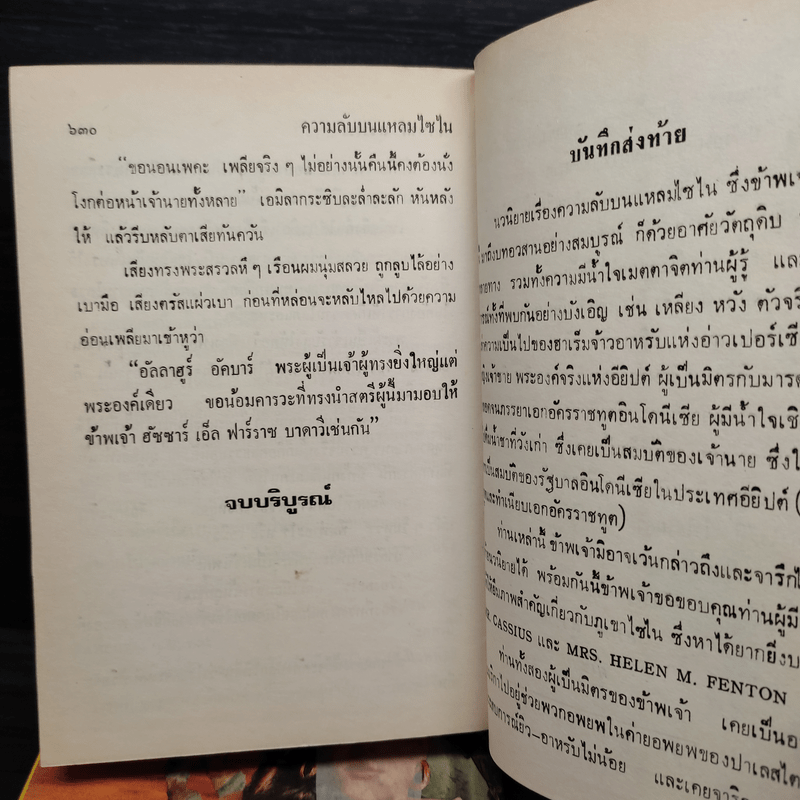 ๖๓๐ ความลับบนแหลมไซไน
“ขอนอนเพคะ เพลียจริง ๆ ไม่อย่างนั้นคืนนี้คงต้องนั่ง
โงกต่อหน้าเจ้านายทั้งหลาย” เอมิลากระซิบละล่ำละลัก หันหลัง
ให้ แล้วรีบหลับตาเสียทันควัน
เสียงทรงพระสรวลหึ ๆ เรือนผมนุ่มสลวย ถูกลูบไล้อย่าง
เบามือ เสียงตรัสแผ่วเบา ก่อนที่หล่อนจะหลับไหลไปด้วยความ
อ่อนเพลียมาเข้าหูว่า
“อัลลาฮูร์ อัคบาร์ พระผู้เป็นเจ้าผู้ทรงยิ่งใหญ่แต่
พระองค์เดียว ขอน้อมคารวะที่ทรงนำสตรีผู้นี้มามอบให้
ข้าพเจ้า ฮัซซาร์ เอ็ล ฟาร์ราช บาดาวีเช่นกัน”
จบบริบูรณ์
บันทึกส่งท้าย
นวนิยายเรื่องความลับบนแหลมไซไน ซึ่งข้าพเจ้า
มาถึงบทอวสานอย่างสมบูรณ์ ก็ด้วยอาศัยวัตถุดิบ
รวมทั้งความมีน้ำใจเมตตาจิตท่านผู้รู้
ทั้งที่พบกันอย่างบังเอิญ เช่น เหลียง หวัง ตัวจริง
ความเป็นไปของฮาเร็มจ้าวอาหรับแห่งอ่าวเปอร์เซีย
พระองค์จริงแห่งอียิปต์ ผู้เป็นมิตรกับมารดา
ภรรยาเอกอัครราชทูตอินโดนีเซีย ผู้มีน้ำใจ
น้ำชาที่วังเก่า ซึ่งเคยเป็นสมบัติของเจ้านาย
เป็นสมบัติของรัฐบาลอินโดนีเซียในประเทศอียิปต์ (
และทำเนียบเอกอัครราชทูต)
ท่านเหล่านี้ ข้าพเจ้ามิอาจเว้นกล่าวถึงและจารึก
นวนิยายได้ พร้อมกันนี้ข้าพเจ้าขอขอบคุณท่านผู้มี
ให้ยืมภาพสำคัญเกี่ยวกับภูเขาไซไน ซึ่งหาได้ยากยิ่ง
CASSIUS และ MRS. HELEN M. FENTON
ท่านทั้งสองผู้เป็นมิตรของข้าพเจ้า เคยเป็น
ไปอยู่ช่วยพวกอพยพในค่ายอพยพของปาเลสไต
ยิว–อาหรับไม่น้อย และเคย